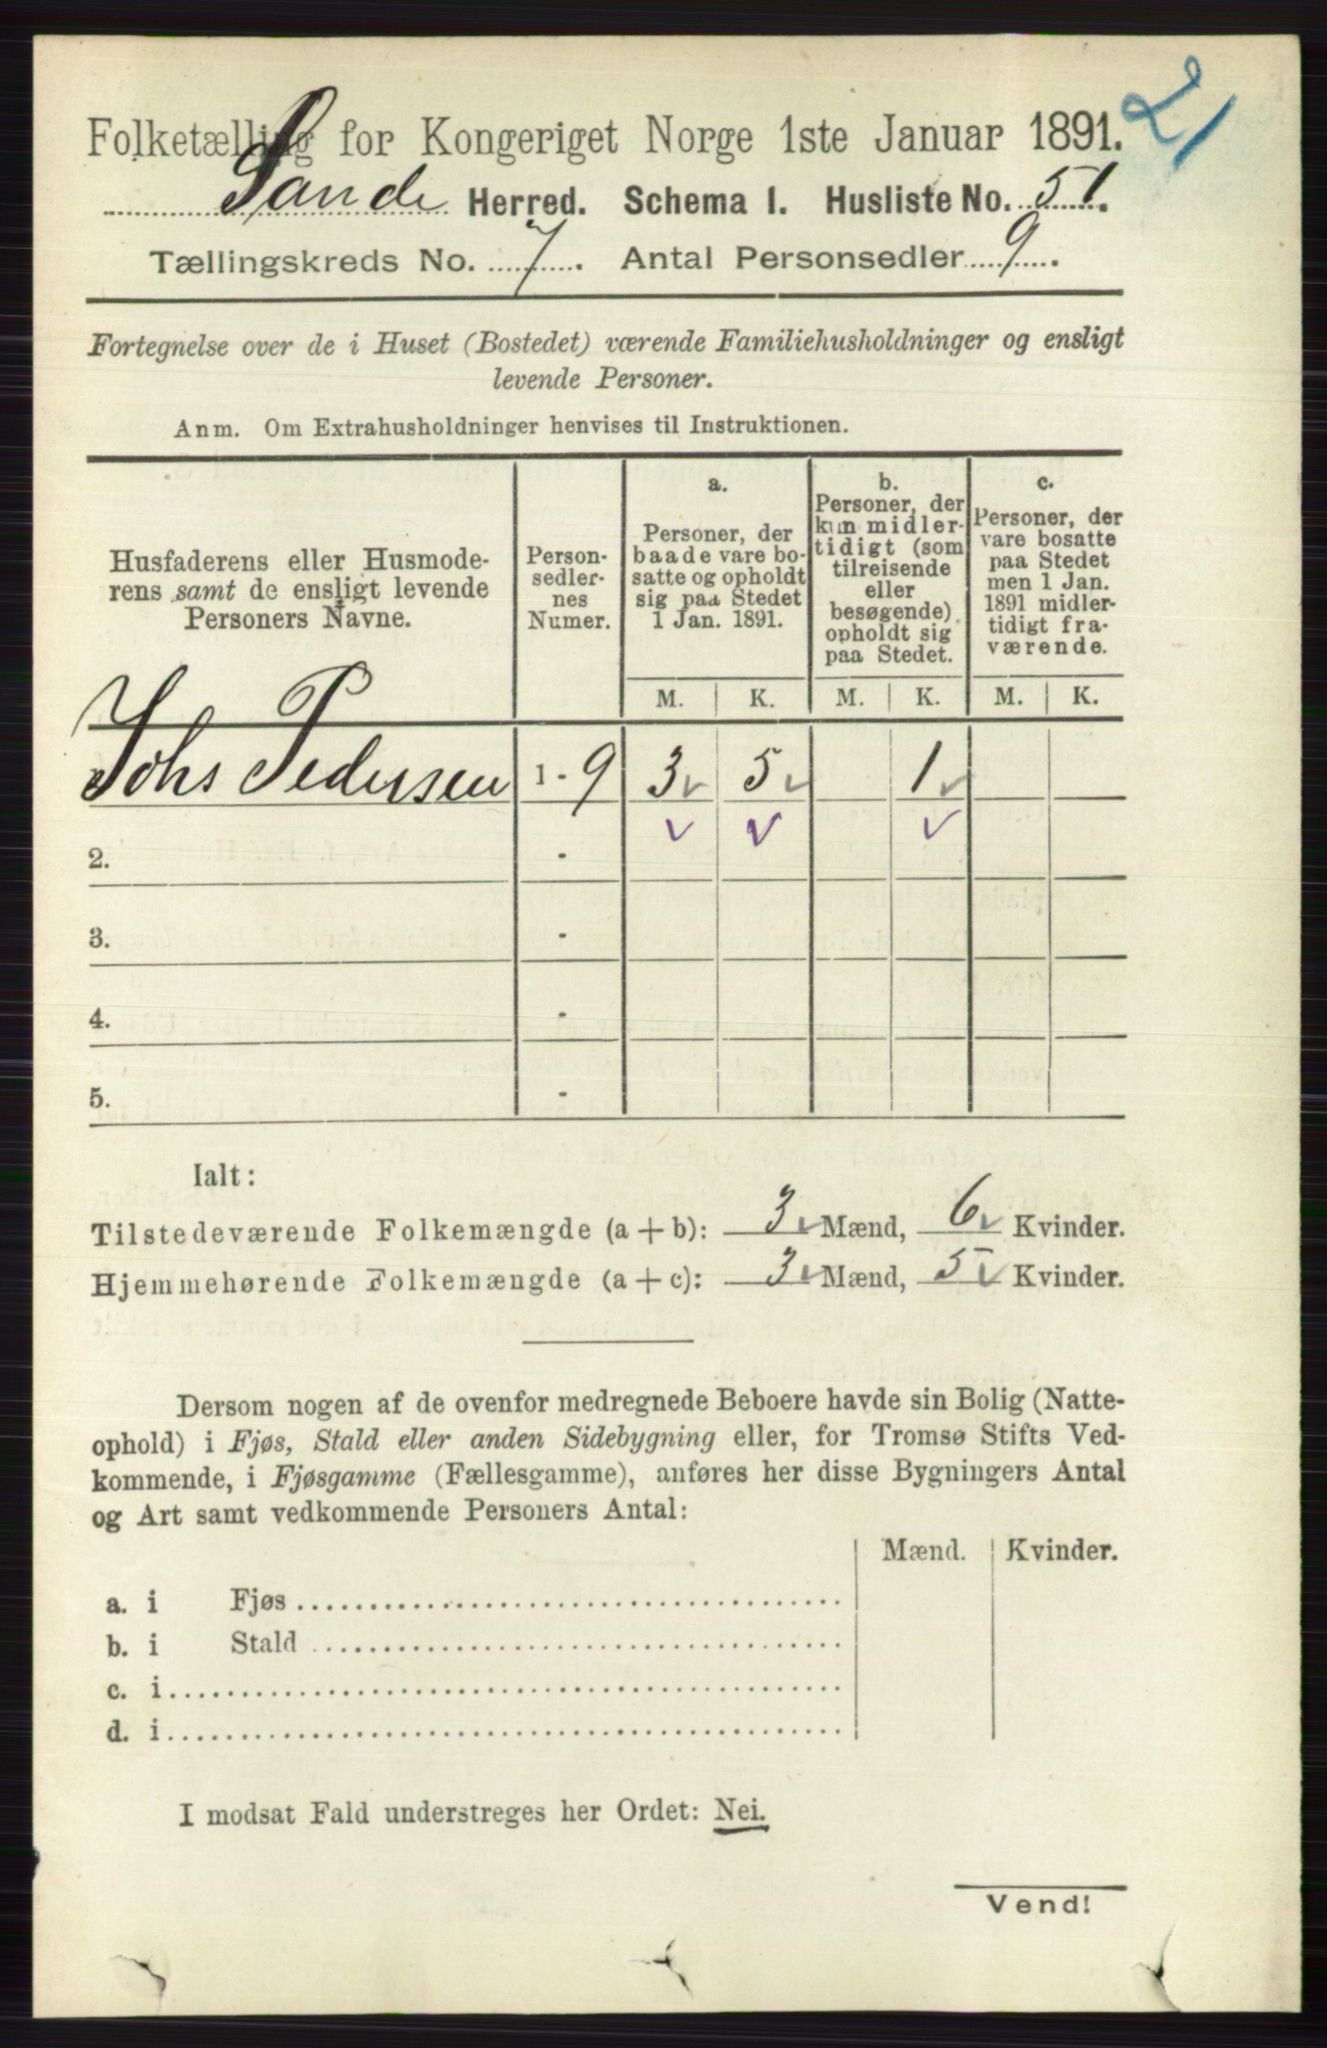 21
Folketælling for Kongeriget Norge 1ste Januar 1891.
Sande Herred. Schema I. Husliste No. 51.
Tællingskreds No. 7. Antal Personsedler 9.
Fortegnelse over de i Huset (Bostedet) værende Familiehusholdninger og ensligt
levende Personer.
Anm. Om Extrahusholdninger henvises til Instruktionen.
Husfaderens eller Husmode-
rens samt de ensligt levende
Personers Navne.
Person-
sedler-
nes
Numer.
a.
Personer, der
baade vare bo-
satte og opholdt
sig paa Stedet
1 Jan. 1891.
b.
Personer, der
kun midler-
tidigt (som
tilreisende
eller
besøgende)
opholdt sig
paa Stedet.
c.
Personer, der
vare bosatte
paa Stedet
men 1 Jan.
1891 midler-
tidigt fra-
værende.
M. K. M. K. M. K.
Johs Pedersen 1 - 9 3 5 1
2. -
3. -
4. -
5. -
Ialt:
Tilstedeværende Folkemængde (a + b): 3 Mænd, 6 Kvinder.
Hjemmehørende Folkemængde (a + c): 3 Mænd, 5 Kvinder.
Dersom nogen af de ovenfor medregnede Beboere havde sin Bolig (Natte-
ophold) i Fjøs, Stald eller anden Sidebygning eller, for Tromsø Stifts Ved-
kommende, i Fjøsgamme (Fællesgamme), anføres her disse Bygningers Antal
og Art samt vedkommende Personers Antal:
Mænd. Kvinder.
a. i Fjøs
b. i Stald
c. i
d. i
I modsat Fald understreges her Ordet: Nei.
Vend!